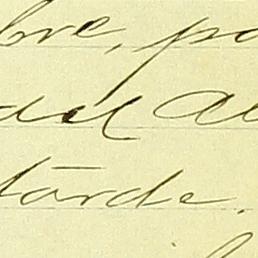 bre, po
del Al
tarde.